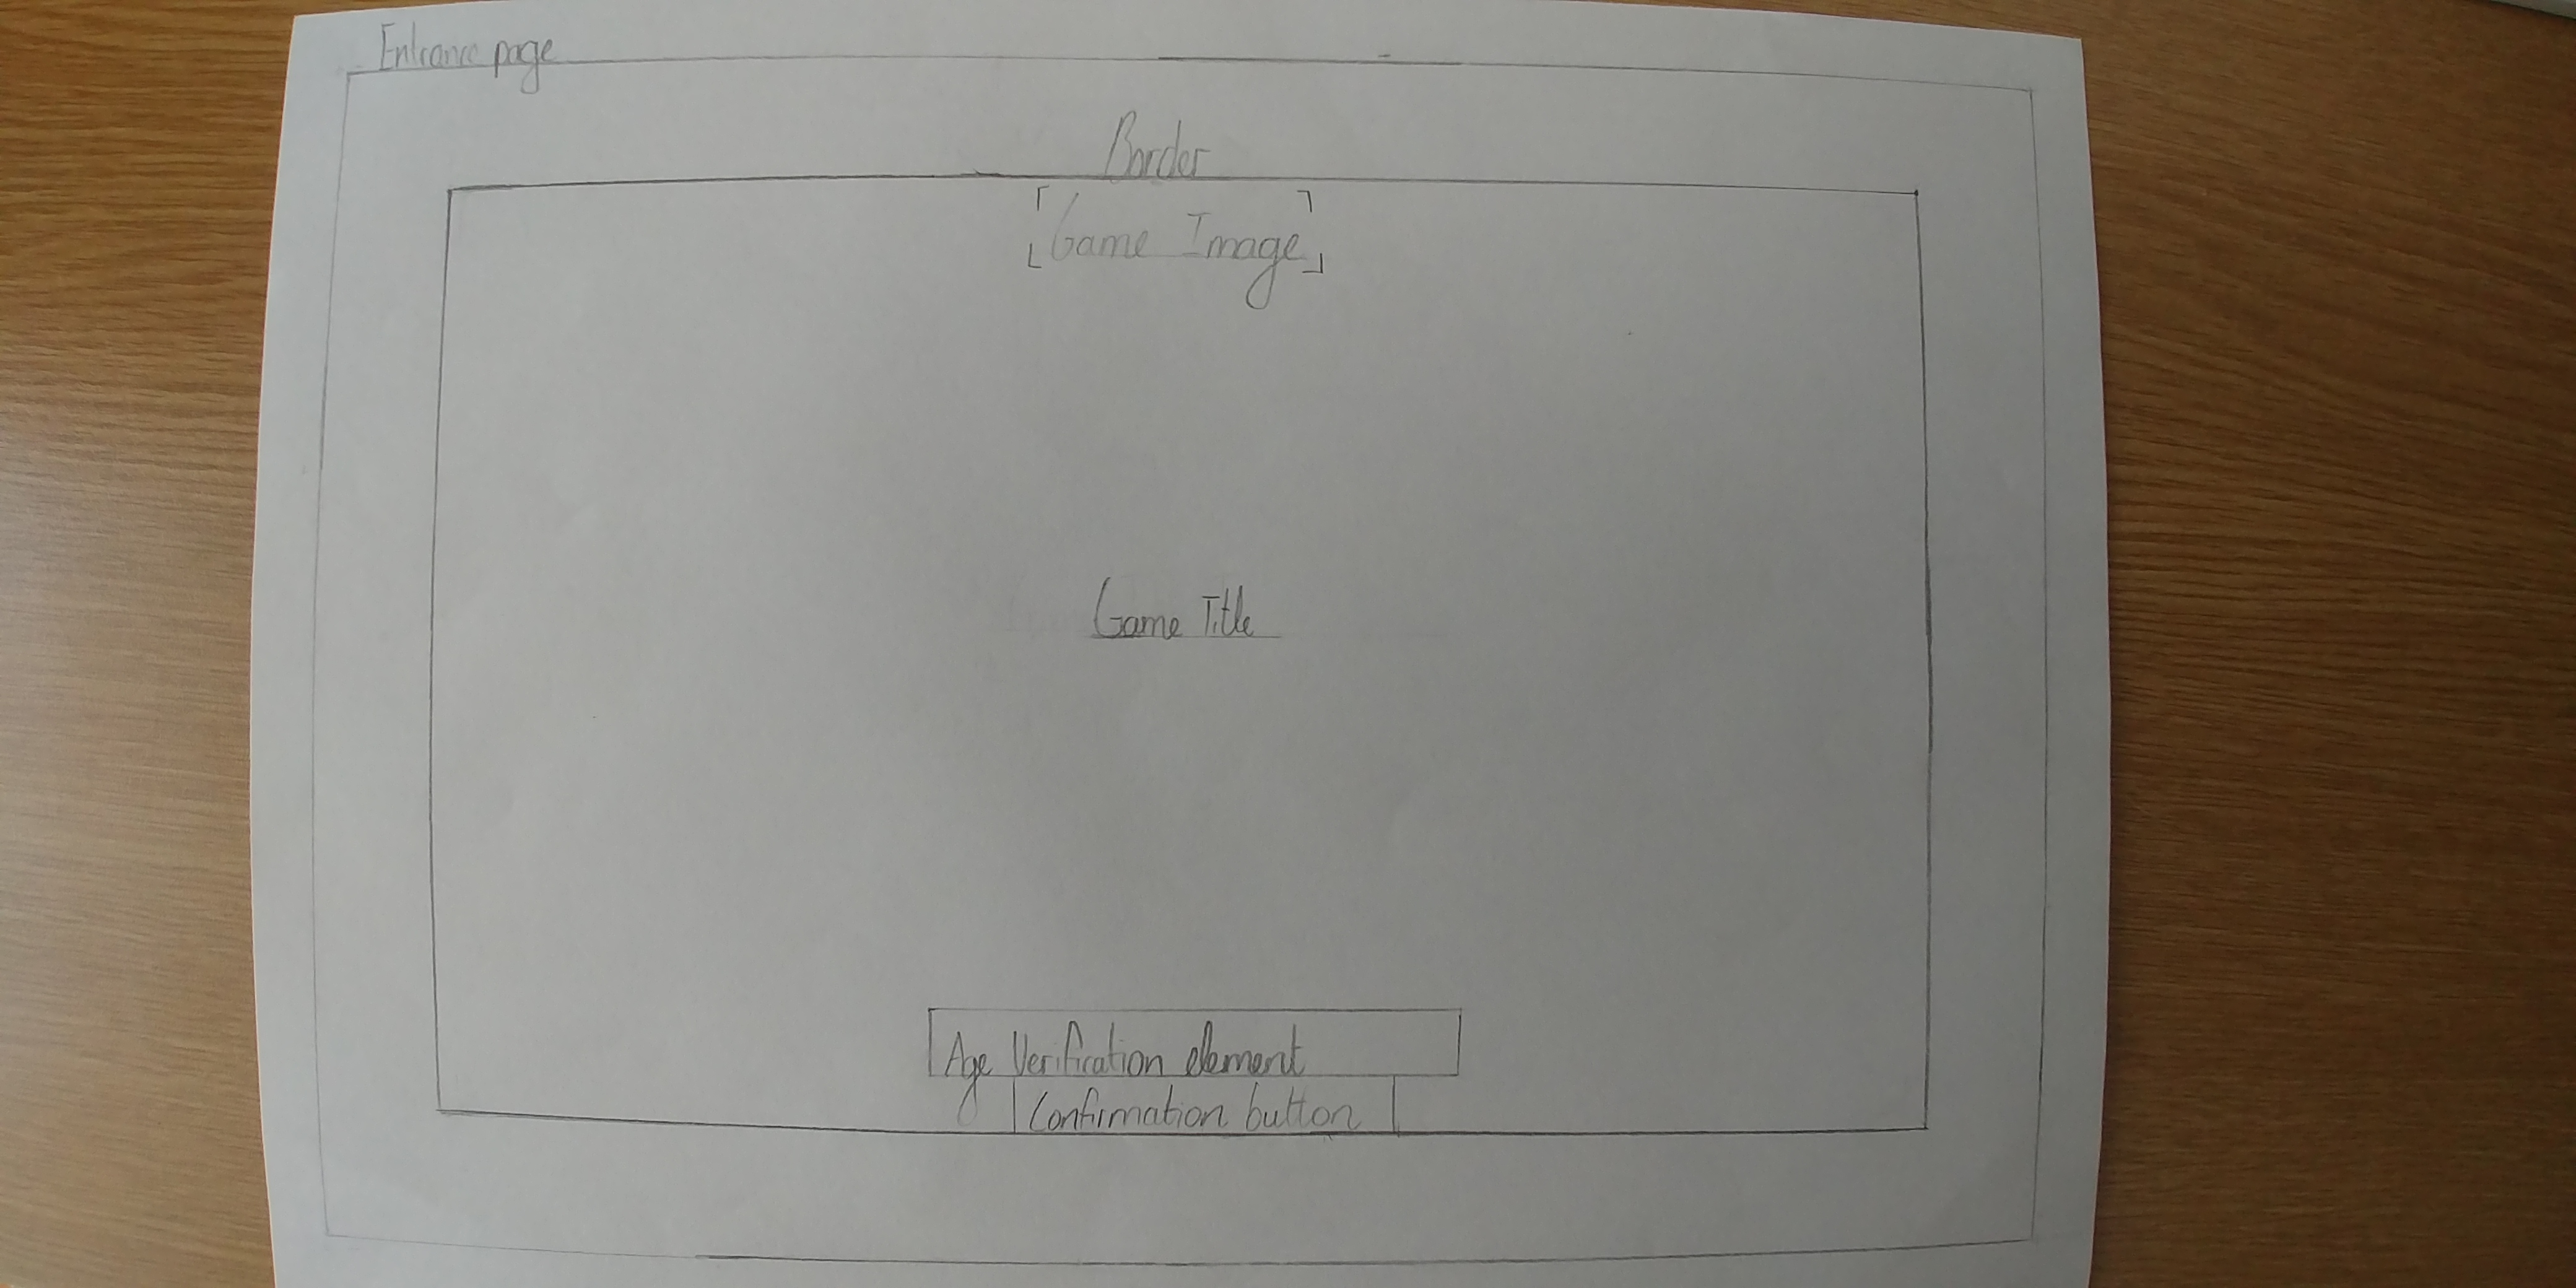 Entrance page
Border
Game Image
Game Title
Age Verification element
Confirmation button